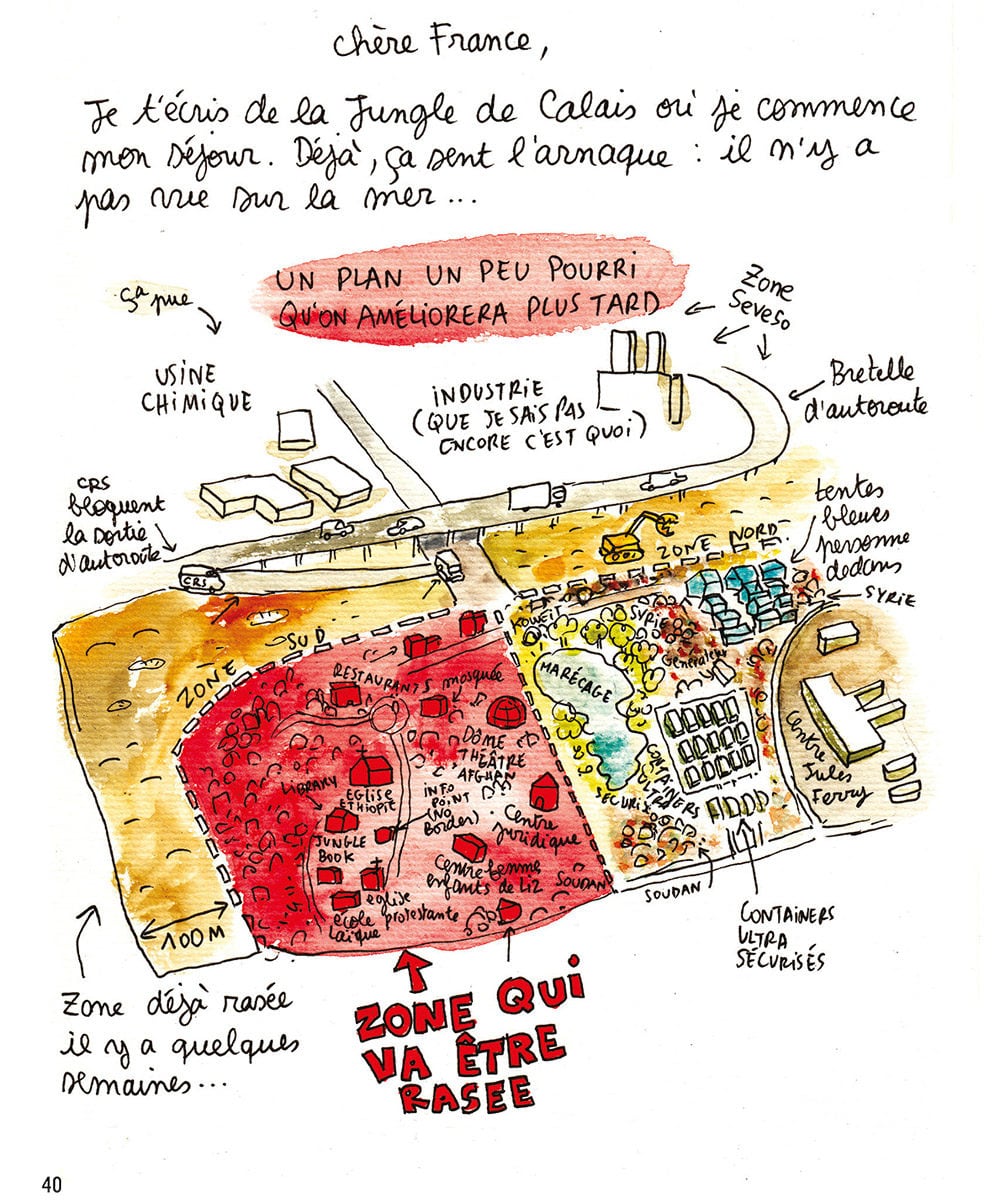 chère France,
Je t'écris de la Jungle de Calais où je commence
mon séjour. Déjà, ça sent l'arnaque : il n'y a
pas vue sur la mer...
UN PLAN UN PEU POURRI
QU'ON AMÉLIORERA PLUS TARD
Zone
Seveso
ça pue
USINE
CHIMIQUE
INDUSTRIE
(QUE JE SAIS PAS
ENCORE C'EST QUOI)
Bretelle
d'autoroute
CRS
bloquent
la sortie
d'autoroute
CRS
tentes
bleues
personne
dedans
SYRIE
ZONE NORD
ZONE SUD
KOWEIT
SYRIE
Générateur
MARÉCAGE
RESTAURANTS
mosquée
DÔME
THÉÂTRE
AFGHAN
LIBRARY
EGLISE
ETHIOPIE
INFO
POINT
(NO
BORDER)
JUNGLE
BOOK
Centre
juridique
Centre femme
enfants de Liz
SOUDAN
église
protestante
école
laïque
CONTAINERS
ULTRA
SECURISÉS
Centre Jules
Ferry
SOUDAN
CONTAINERS
ULTRA
SÉCURISÉS
100M
Zone déjà rasée
il y a quelques
semaines...
ZONE QUI
VA ÊTRE
RASEE
40